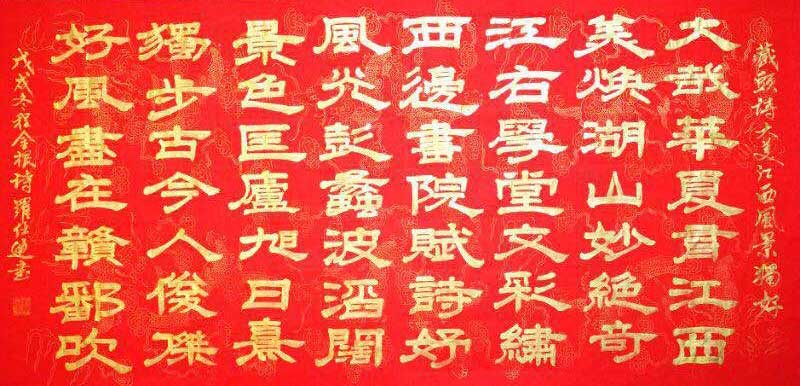 藏頭詩大美江西風景獨好
大哉華夏看江西
美煥湖山妙絕奇
江右學堂文彩繡
西邊書院賦詩妤
風光彭蠡波滔闊
景色匡廬旭日熹
獨步古今人俊傑
好風盡在贛鄱吹
戊戌冬程金根詩 羅仕書